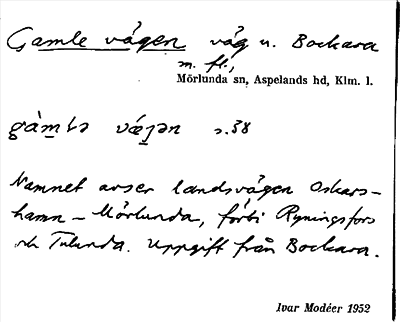 Gamle vägen väg u. Bockara
m. fl.,
Mörlunda sn, Aspelands hd, Klm. l.
gàm̲lə vǽjən s. 38
Namnet avser landsvägen Oskars-
hamn – Mörlunda, förbi Ryningsfors
och Tulunda. Uppgift från Bockara.
Ivar Modéer 1952